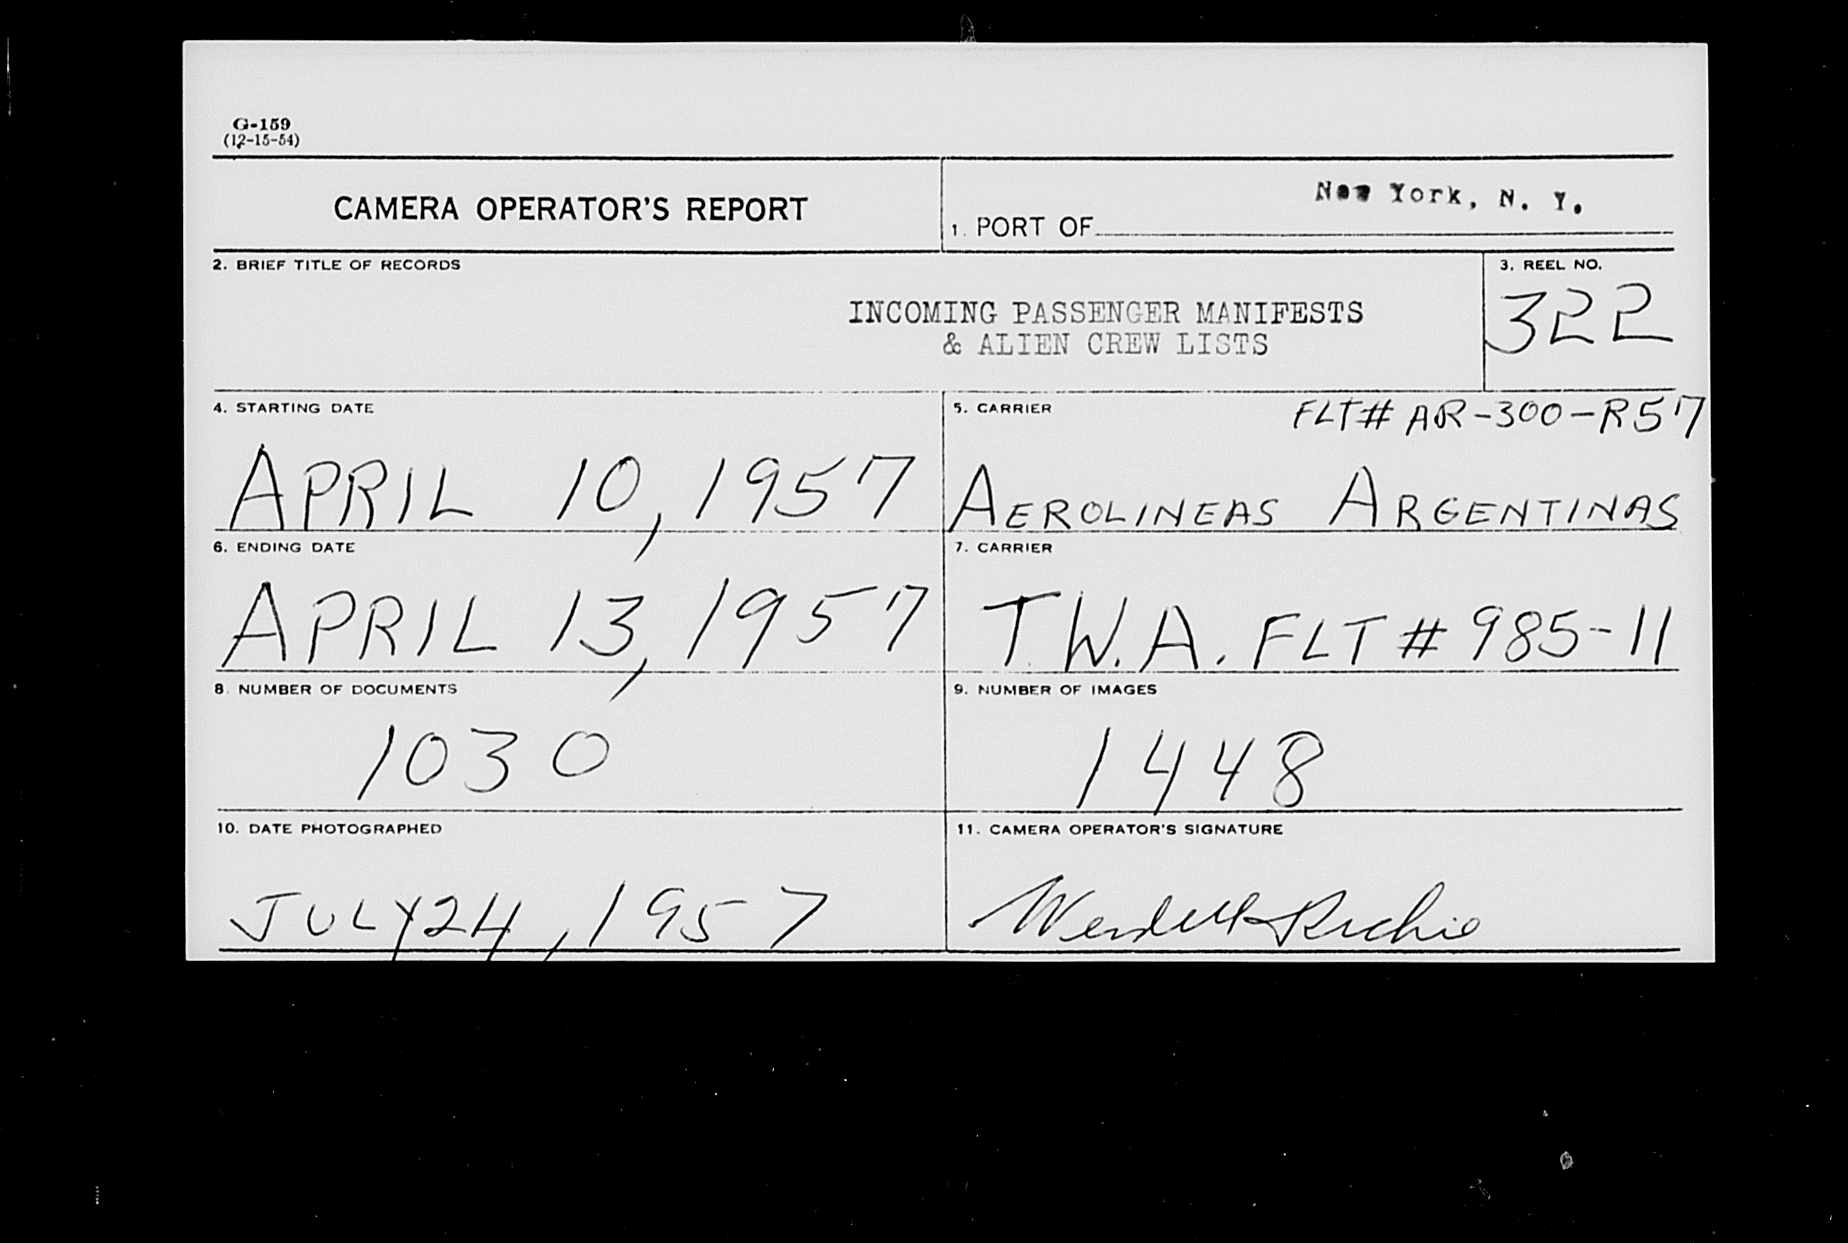 G-159
(12-15-54)
CAMERA OPERATOR'S REPORT
1. PORT OF New York, N. Y.
2. BRIEF TITLE OF RECORDS
INCOMING PASSENGER MANIFESTS
& ALIEN CREW LISTS
3. REEL NO.
322
4. STARTING DATE
APRIL 10, 1957
5. CARRIER
FLT# AR-300-R57
AEROLINEAS ARGENTINAS
6. ENDING DATE
APRIL 13, 1957
7. CARRIER
T.W.A. FLT # 985-11
8. NUMBER OF DOCUMENTS
1030
9. NUMBER OF IMAGES
1448
10. DATE PHOTOGRAPHED
JULY 24, 1957
11. CAMERA OPERATOR'S SIGNATURE
Wendell Richie